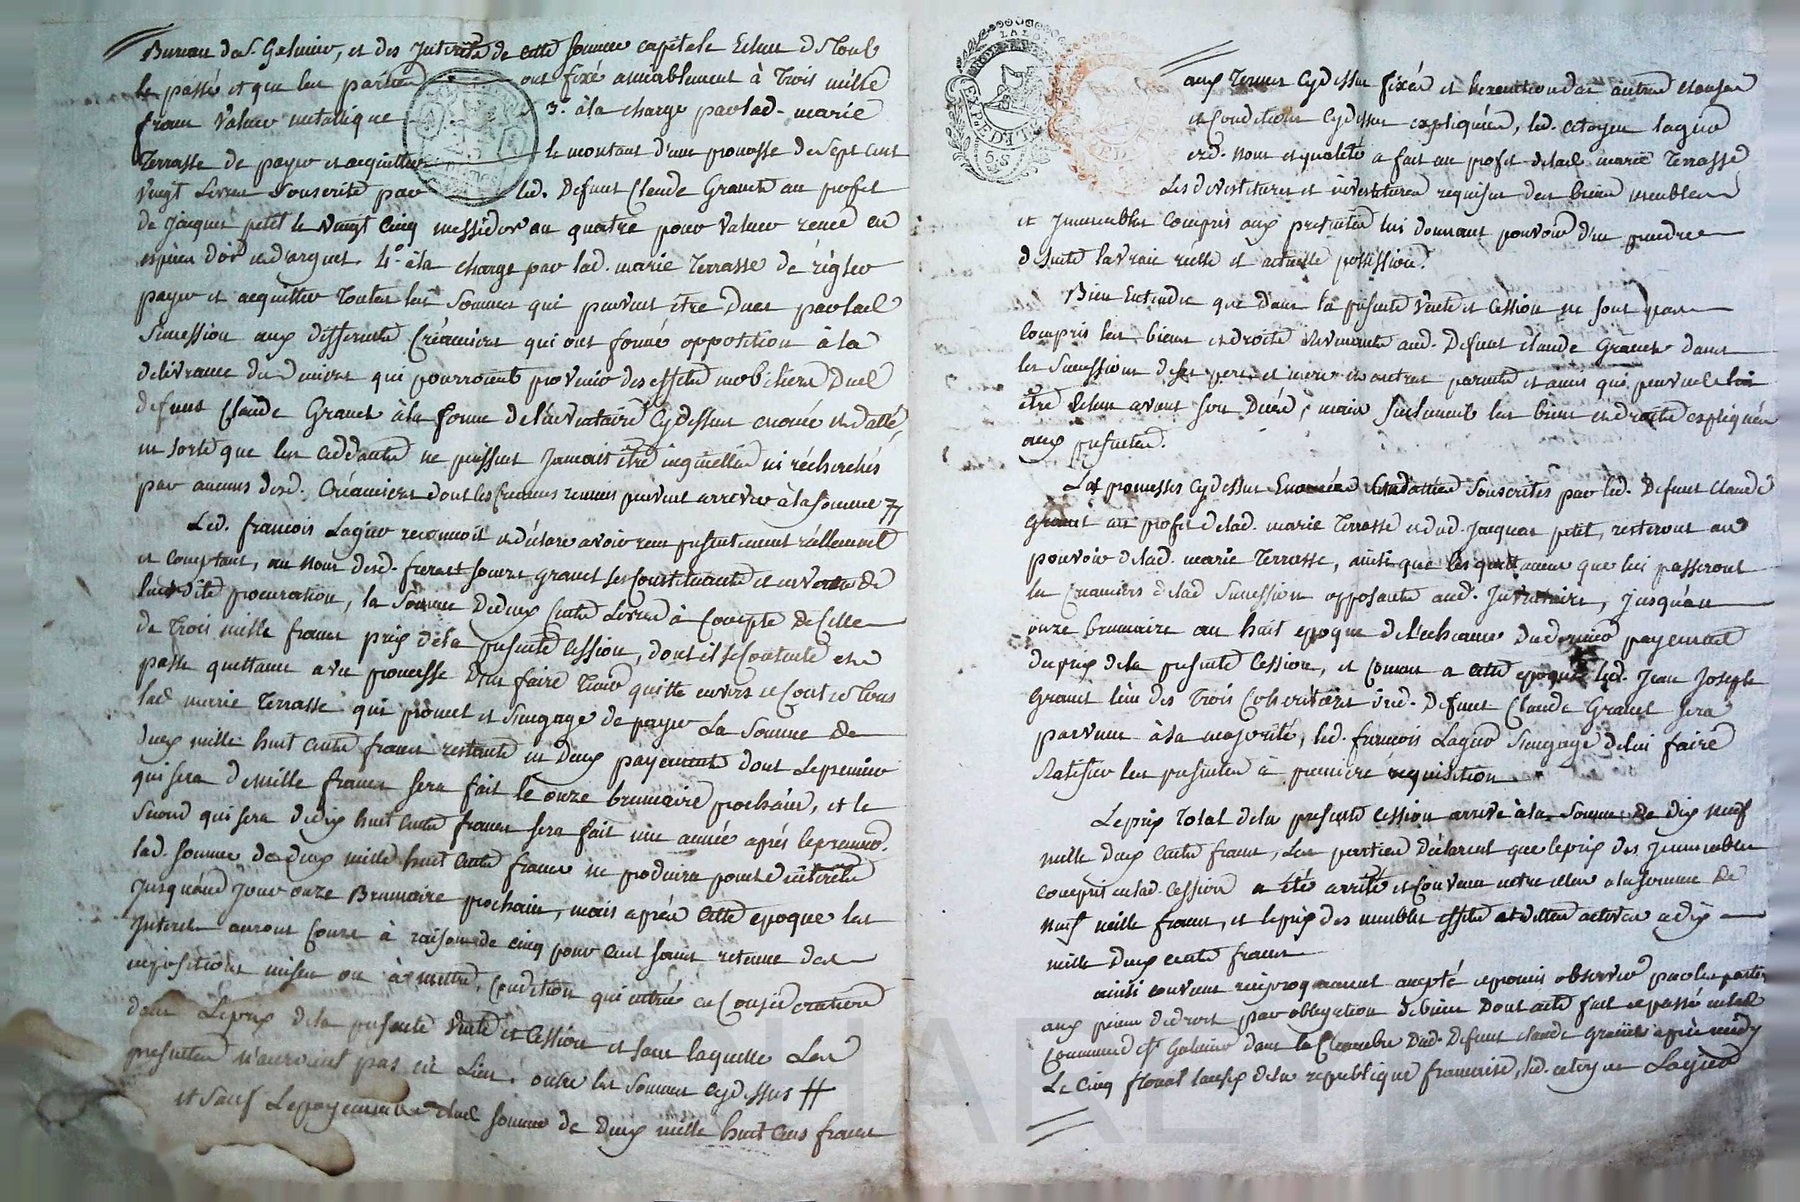 Bureau de St. Galmier, et des Interets de cette somme capitale Echue de Tout
le passé et que les parties ont fixé amiablement à Trois mille
francs valeur métalique 3.° à la charge par lad. marie
Terrasse de payer et acquitter le montant d'une promesse de Sept cent
vingt Livres Souscrite par led. Defunt Claude Granet au profit
de Jacques petit le vingt Cinq messidor an quatre pour valeur recue en
espèces d'or et d'argent. 4.° à la charge par lad. marie Terrasse de régler
payer et acquitter Toutes les Sommes qui peuvent etre Dues par lad.
Succession aux differents Créanciers qui ont formé opposition à la
délivrance des deniers qui pourroient provenir des effets mobiliers Dud.
défunt Claude Granet à la forme de l'inventaire Cydessus enoncé et datté,
en sorte que les cédants ne puissent Jamais être inquiettés ni récherchés
par aucuns desd. Créanciers dont les Creances reunies peuvent arriver à la somme
Led. francois Lagier reconnoit et déclare avoir recu presentement réellement
et comptant, au nom desd. freres et soeurs granet ses constituants et en vertu de
leurdite procuration, la Somme Dedeux Cents Livres à Compte de Celle
de Trois mille francs prix dela presente Cession, dont il se contente et en
passe quittance avec promesse d'en faire Tenir quitte envers et Contre Tous
lad marie Terrasse qui promet et s'engage de payer La Somme de
deux mille huit cents francs restante en Deux payements dont Lepremier
qui sera demille francs sera fait le onze brumaire prochain, et le
second qui sera dedix huit cents francs sera fait une année après le premier.
lad. somme de deux mille huit cents francs ne produira point d'intérêts
Jusqu'aud Jour onze Brumaire prochain, mais après cette epoque les
Interets auront Cours à raison de cinq pour cent sans retenue des
impositions mises ou à mettre, Condition qui entrée en Consideration
dans Leprix dela presente Vente et Cession et sans laquelle Les
presentes n'auroient pas eu Lieu. outre les sommes cydessus #
et sauf Lepayement de lad. somme de Deux mille huit cens francs
EXPEDITS
5. S
aux termes Cydessus fixés et l'execution des autres clauses
et Conditions Cydessus expliquées, led. citoyen lagier
esd. nom et qualité a fait au profit delad. marie Terrasse
Les devestitures et investitures requises des biens meubles
et Immeubles Compris aux presentes lui donnant pouvoir d'en prendre
desuite la vraie reelle et actuelle possession.
Bien Entendu que dans la presente Vente et Cession ne sont pas
Compris les biens et droits revenants aud. Defunt Claude Granet dans
les Successions de ses pere et mere et autres parents et amis qui peuvent lui
être Echus avant son Décés, mais seulement les biens et droits expliqués
aux presentes.
Les promesses Cydessus Enoncées Souscrites par led. Defunt Claude
Granet au profit delad. marie Terrasse et dud. Jacques petit, resteront au
pouvoir delad. marie Terrasse, ainsi que les quittances que lui passeront
les Créanciers delad Succession opposants aud. Inventaire, Jusqu'au
onze brumaire an huit epoque de l'echeance du dernier payement
du prix dela presente Cession, et Comme a cette epoque led. Jean Joseph
Granet l'un des Trois Coheritiers dud. Defunt Claude Granet sera
parvenu à la majorité, led. francois Lagier s'engage de lui faire
Ratifier les presentes à premiere requisition.
Leprix Total dela presente Cession arrive à la Somme de dix neuf
mille deux cents francs, Les parties déclarent que leprix des Immeubles
Compris en lad. Cession a été arrêté et convenu entre elles a la somme de
neuf mille francs, et leprix des meubles effets et dettes actives a dix
mille deux cents francs
ainsi convenu reciproquement accepté et promis observer par les parties
aux peines de droit par obligation de biens Dont acte fait et passé en lad
Commune de St Galmier dans la Chambre Dud. Defunt Claude Granet après midy
Le Cinq floréal l'an six dela republique francaise, led. citoyen Lagier